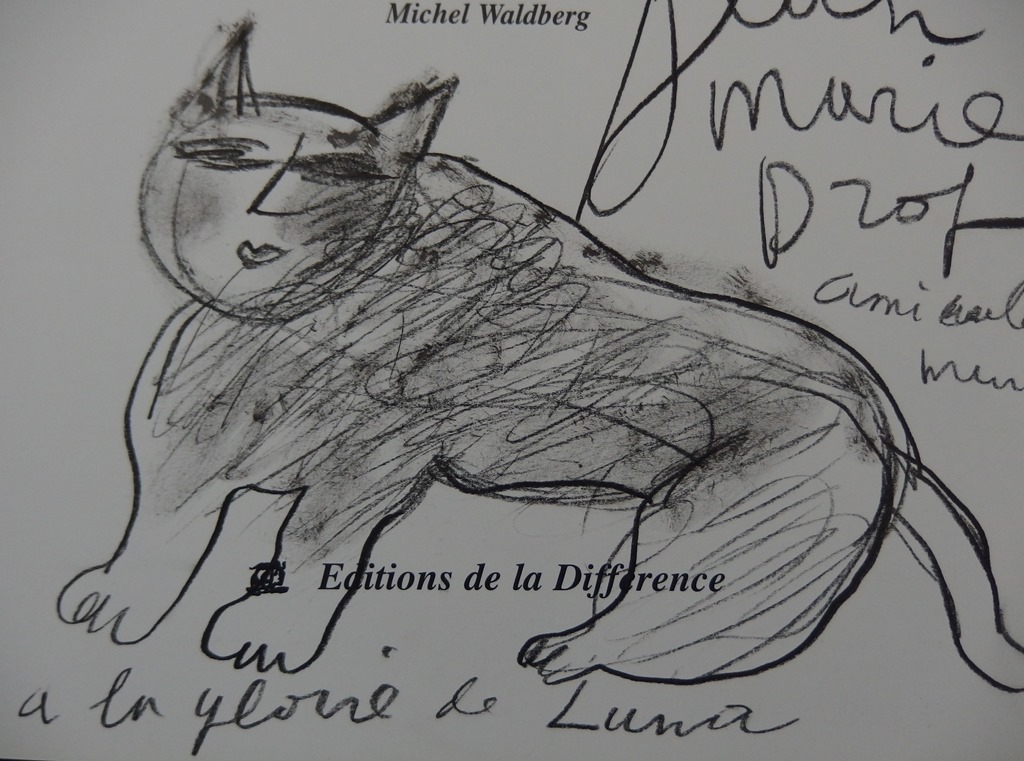 Michel Waldberg
Jean
Marie
Drot
amicale
Editions de la Différence
a la gloire de Luna